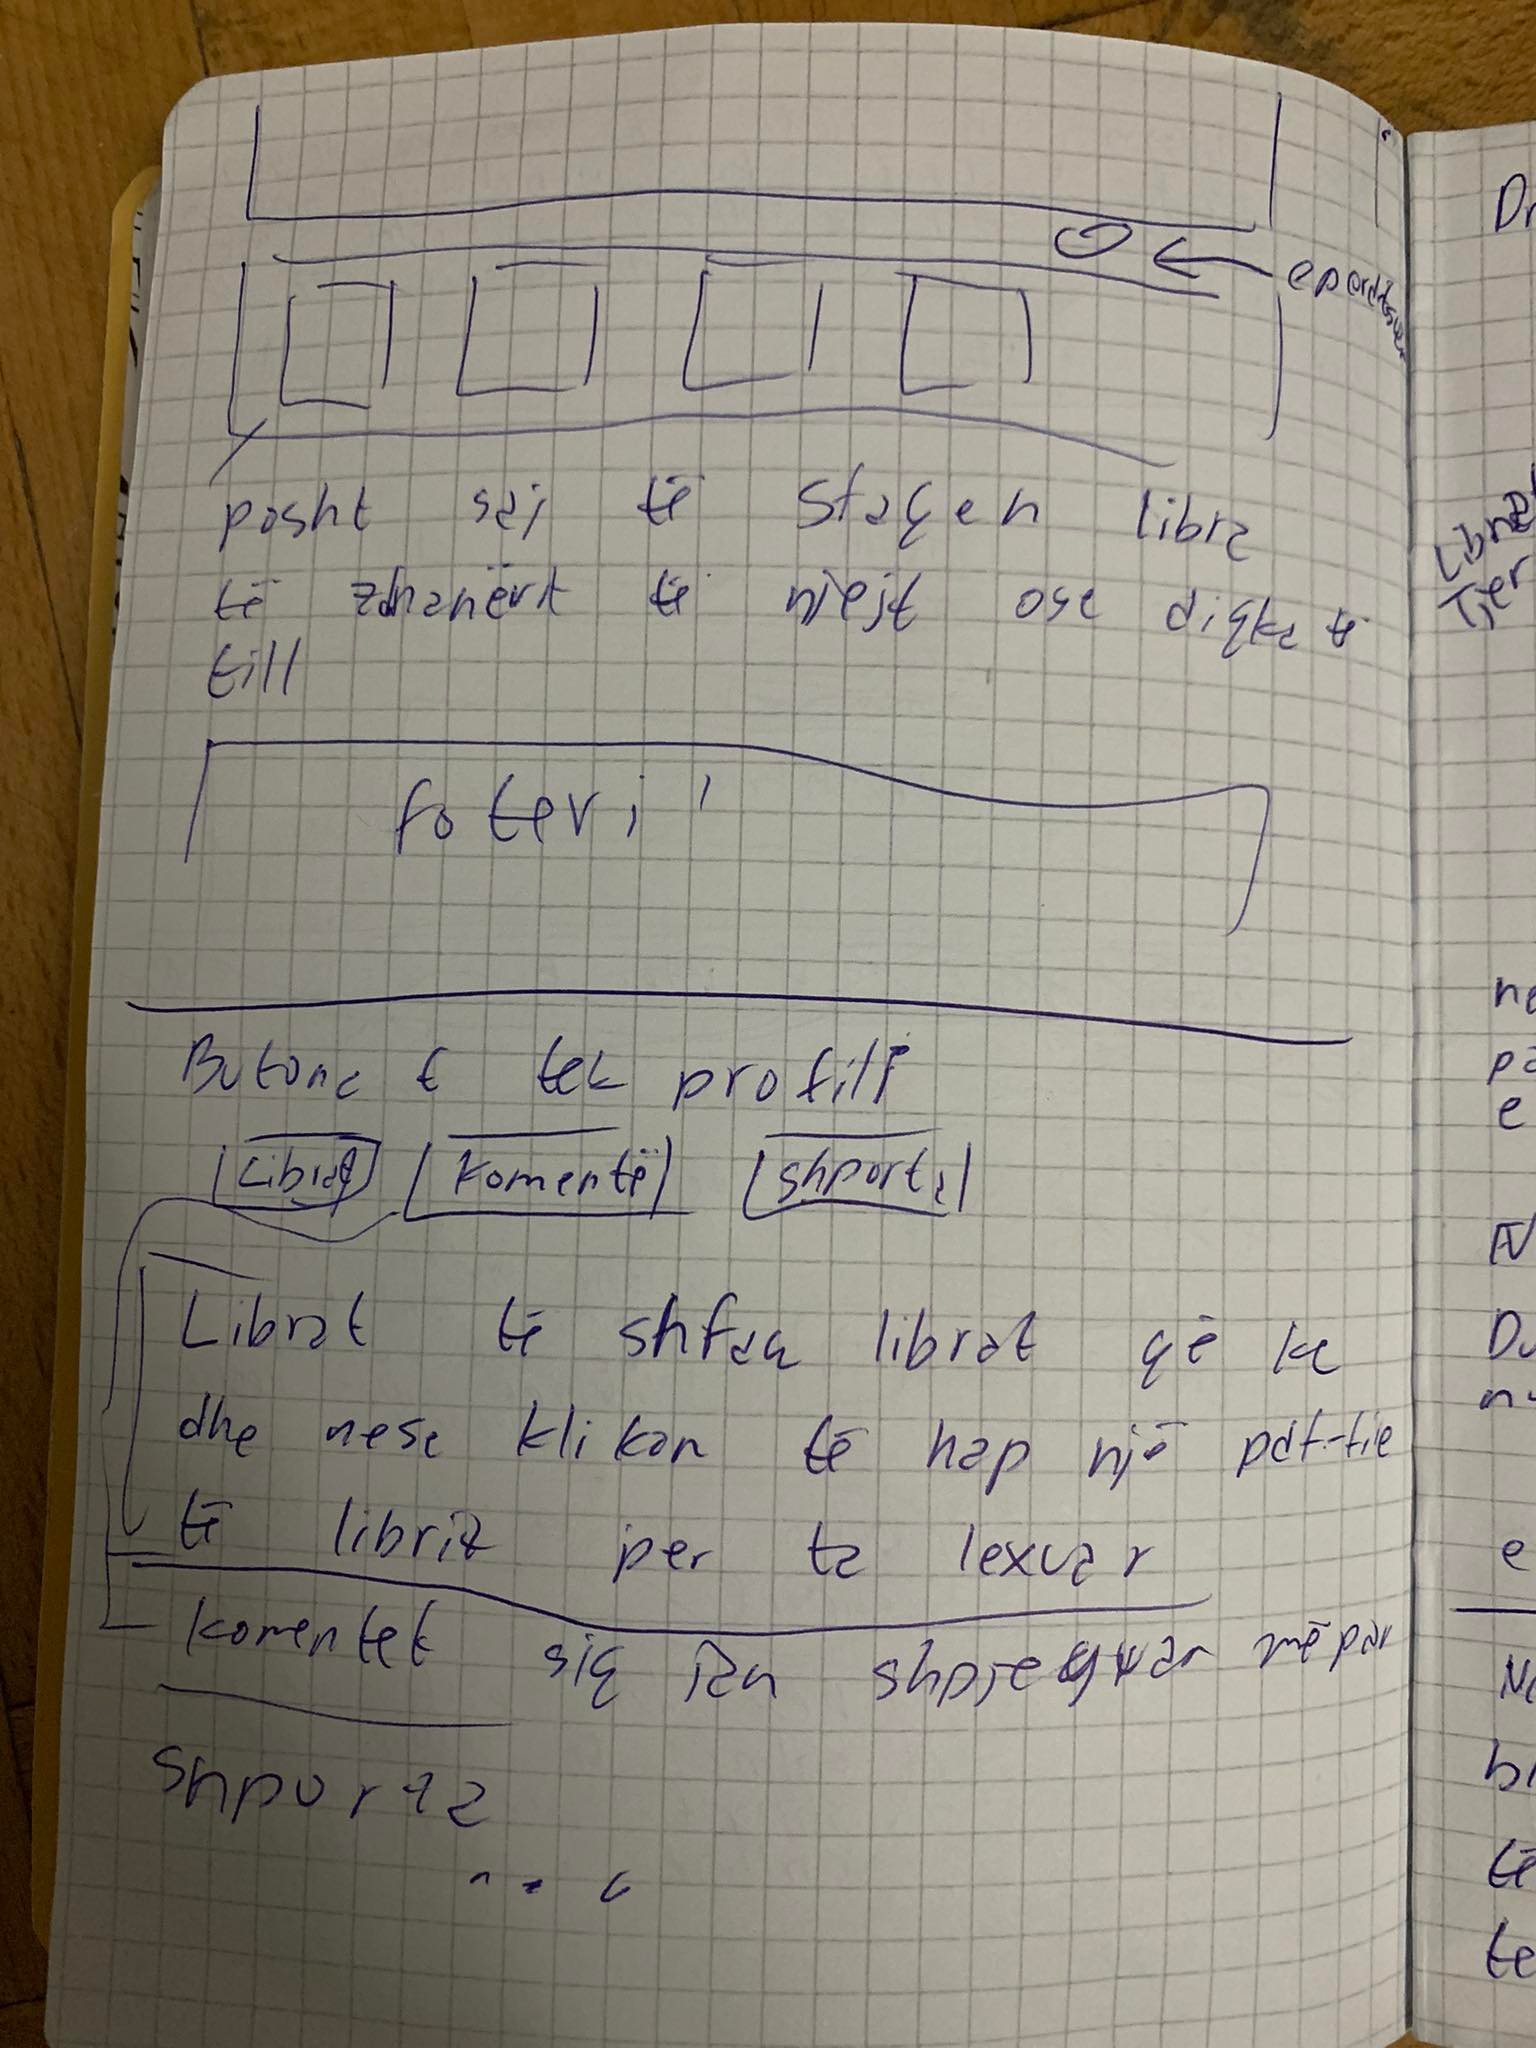 posht saj të sfaqen libra
të zhanërit të njejt ose diçka të
till
foteri
Butona t tek profili
Librat
Komentë
shporta
Librat të shfaq librat që ke
dhe nese klikon të hap një pdf-fie
të librit per ta lexuar
komentet siq jan shpjeguar mëpar
shporta
Dr
Librat
Tjer
në
pa
e
Du
e
të
te